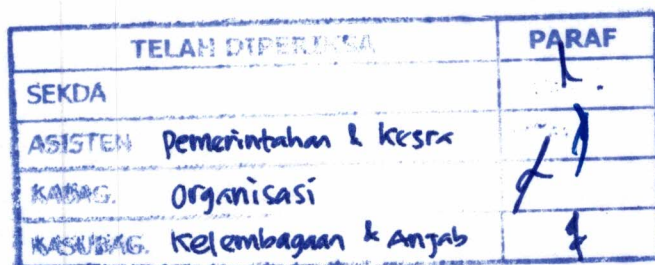 TELAH DIPERIKSA PARAF
SEKDA
ASISTEN Pemerintahan & Kesra
KABAG. Organisasi
KASUBAG. Kelembagaan & Anjab